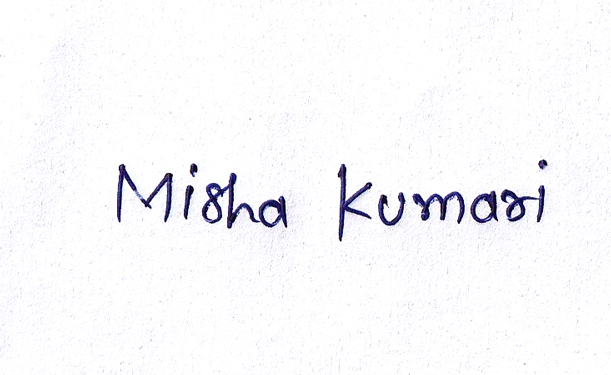 Misha Kumari